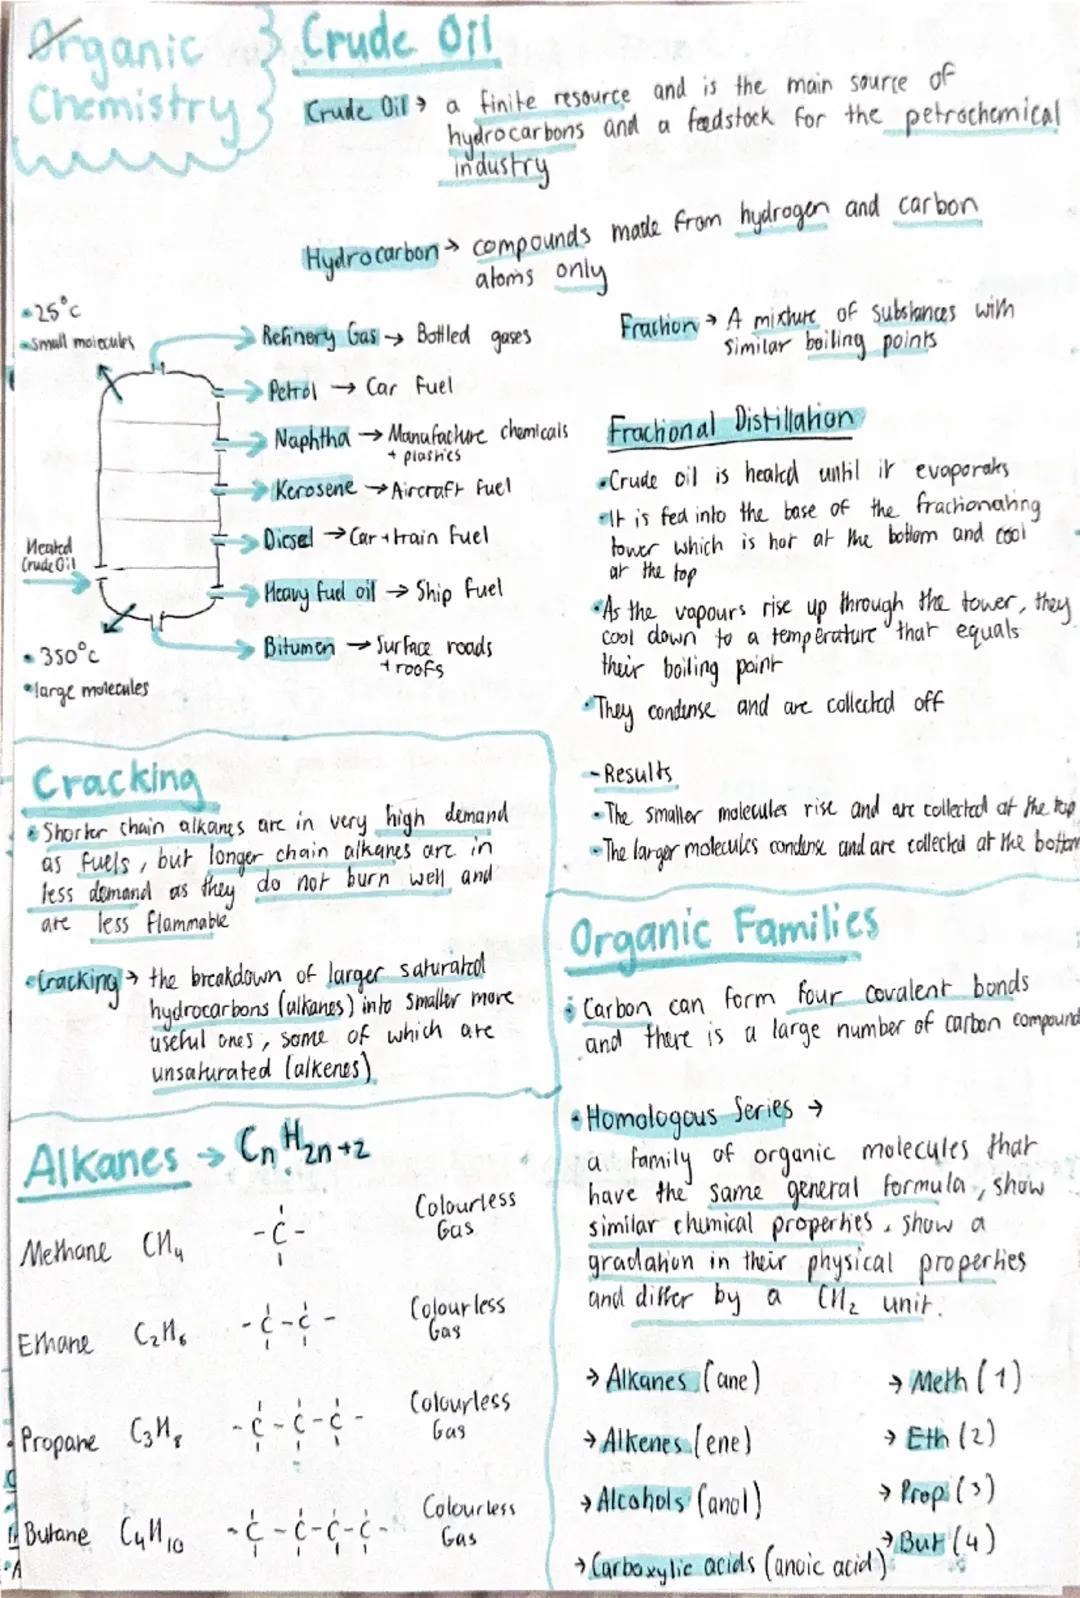 Organic
Chemistry
Crude Oil
Crude Oil → a finite resource and is the main source of
hydrocarbons and a feedstock for the petrochemical
industry
Hydrocarbon → compounds made from hydrogen and carbon
atoms only
Fraction → A mixture of substances with
similar boiling points
• 25°C
• small molecules
Heated
Crude Oil
• 350°C
• large molecules
Refinery Gas → Bottled gases
Petrol → Car fuel
Naphtha → Manufacture chemicals
+ plastics
Kerosene → Aircraft fuel
Diesel → Car + train fuel
Heavy fuel oil → Ship fuel
Bitumen → Surface roads
+ roofs
Fractional Distillation
• Crude oil is heated until it evaporates
• It is fed into the base of the fractionating
tower which is hot at the bottom and cool
at the top
• As the vapours rise up through the tower, they
cool down to a temperature that equals
their boiling point
• They condense and are collected off
- Results
• The smaller molecules rise and are collected at the top
• The larger molecules condense and are collected at the bottom
Cracking
• Shorter chain alkanes are in very high demand
as fuels, but longer chain alkanes are in
less demand as they do not burn well and
are less flammable
• Cracking → the breakdown of larger saturated
hydrocarbons (alkanes) into smaller more
useful ones, some of which are
unsaturated (alkenes)
Organic Families
• Carbon can form four covalent bonds
and there is a large number of carbon compound
• Homologous Series →
a family of organic molecules that
have the same general formula, show
similar chemical properties, show a
gradation in their physical properties
and differ by a CH₂ unit.
→ Alkanes (ane)
→ Alkenes (ene)
→ Alcohols (anol)
→ Carboxylic acids (anoic acid)
→ Meth (1)
→ Eth (2)
→ Prop (3)
→ But (4)
Alkanes → CnH2n+2
Methane CH₄ -C- Colourless
Gas
Ethane C₂H₆ -C-C- Colourless
Gas
Propane C₃H₈ -C-C-C- Colourless
Gas
Butane C₄H₁₀ -C-C-C-C- Colourless
Gas